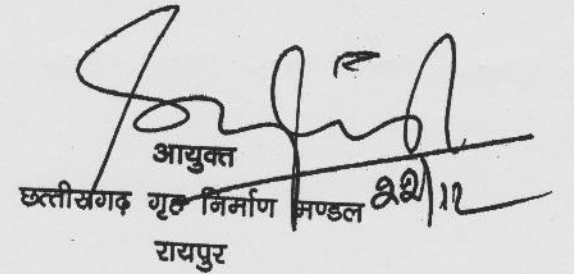 आयुक्त
छत्तीसगढ़ गृह निर्माण मण्डल 22/12
रायपुर